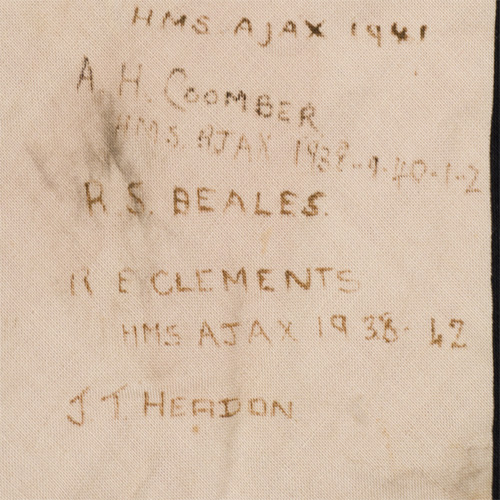 HMS AJAX 1941
A. H. COOMBER
HMS. AJAX 1938-9-40-1-2
R.S. BEALES.
R E CLEMENTS
HMS AJAX 1938-42
J.T. HEADON